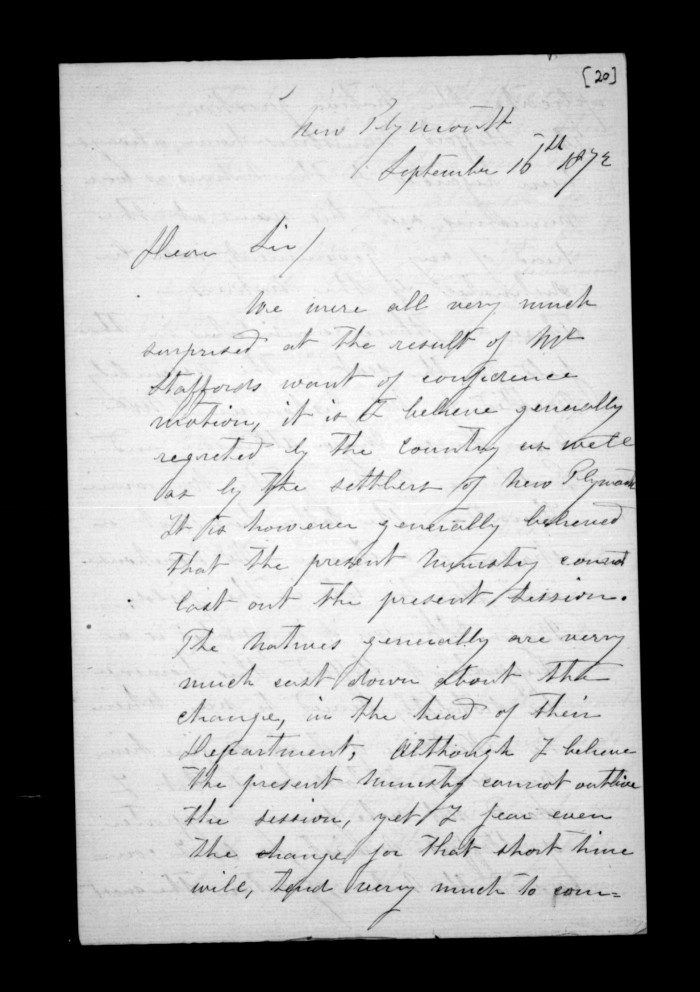 [20]
New Plymouth
September 16th 1872
Dear Sir/
We were all very much
surprised at the result of Mr
Staffords want of confidence
motion, it is I believe generally
regreted by the country as well
as by the settlers of New Plymouth
It is however generally believed
that the present Ministry cannot
last out the present session.
The Natives generally are very
much cast down about the
change, in the head of their
Department, Although I believe
the present Ministry cannot outlive
the session, yet I fear even
the change for that short time
will, tend very much to com=